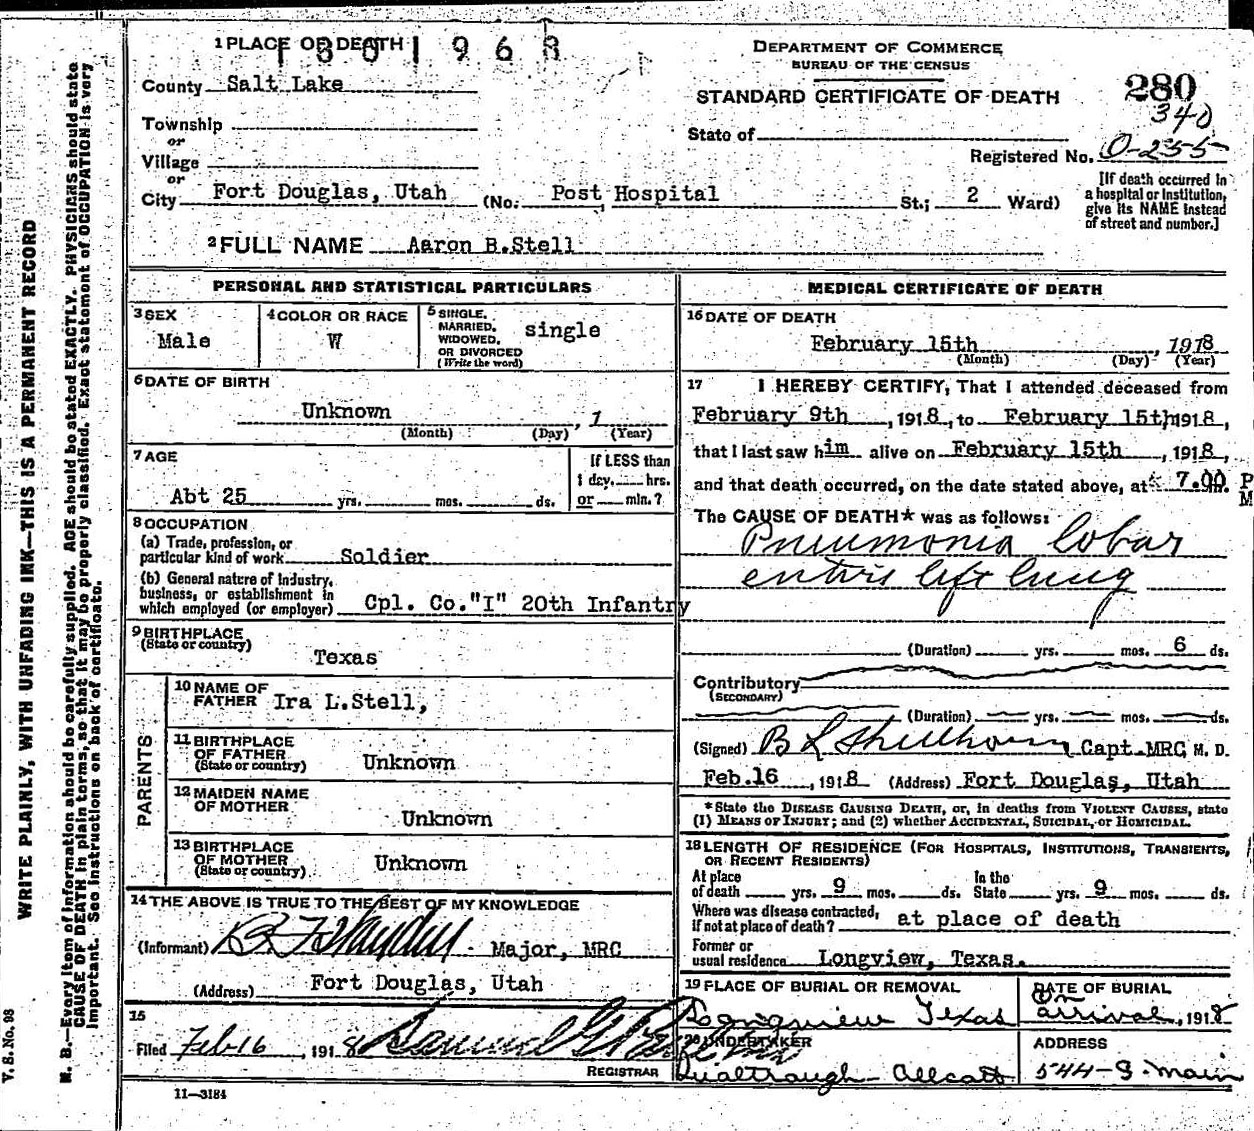 1 PLACE OF DEATH
1801968
County Salt Lake
Township
or
Village
or
City Fort Douglas, Utah (No. Post Hospital St.; 2 Ward)
DEPARTMENT OF COMMERCE
BUREAU OF THE CENSUS
STANDARD CERTIFICATE OF DEATH
280
340
State of
Registered No. O-255
[If death occurred in
a hospital or institution,
give its NAME instead
of street and number.]
2 FULL NAME Aaron B.Stell
PERSONAL AND STATISTICAL PARTICULARS
3 SEX
Male
4 COLOR OR RACE
W
5 SINGLE,
MARRIED,
WIDOWED,
OR DIVORCED
(Write the word)
single
6 DATE OF BIRTH
Unknown , 1
(Month) (Day) (Year)
7 AGE
Abt 25 yrs. mos. ds.
If LESS than
1 day, hrs.
or min.?
8 OCCUPATION
(a) Trade, profession, or
particular kind of work Soldier
(b) General nature of industry,
business, or establishment in
which employed (or employer) Cpl. Co."I" 20th Infantry
9 BIRTHPLACE
(State or country)
Texas
PARENTS
10 NAME OF
FATHER Ira L.Stell,
11 BIRTHPLACE
OF FATHER
(State or country) Unknown
12 MAIDEN NAME
OF MOTHER
Unknown
13 BIRTHPLACE
OF MOTHER
(State or country) Unknown
14 THE ABOVE IS TRUE TO THE BEST OF MY KNOWLEDGE
(Informant) Major, MRC
(Address) Fort Douglas, Utah
15
Filed Feb 16 , 1918 Samuel G
REGISTRAR
11—3184
MEDICAL CERTIFICATE OF DEATH
16 DATE OF DEATH
February 15th , 1918
(Month) (Day) (Year)
17 I HEREBY CERTIFY, That I attended deceased from
February 9th , 1918, to February 15th, 1918,
that I last saw him alive on February 15th , 1918,
and that death occurred, on the date stated above, at 7.00 m. P
M
The CAUSE OF DEATH* was as follows:
Pneumonia lobar
entire left lung
(Duration) yrs. mos. 6 ds.
Contributory
(SECONDARY)
(Duration) yrs. mos. ds.
(Signed) B L Shellhorn Capt. MRC M. D.
Feb.16 , 1918 (Address) Fort Douglas, Utah
*State the DISEASE CAUSING DEATH, or, in deaths from VIOLENT CAUSES, state
(1) MEANS OF INJURY; and (2) whether ACCIDENTAL, SUICIDAL, or HOMICIDAL.
18 LENGTH OF RESIDENCE (FOR HOSPITALS, INSTITUTIONS, TRANSIENTS,
OR RECENT RESIDENTS)
At place
of death yrs. 9 mos. ds.
In the
State yrs. 9 mos. ds.
Where was disease contracted,
if not at place of death? at place of death
Former or
usual residence Longview, Texas.
19 PLACE OF BURIAL OR REMOVAL
Longview Texas
DATE OF BURIAL
On
arrival, 1918
20 UNDERTAKER
ADDRESS
544-S. Main
V. S. No. 98
WRITE PLAINLY, WITH UNFADING INK—THIS IS A PERMANENT RECORD
N. B.—Every item of information should be carefully supplied. AGE should be stated EXACTLY. PHYSICIANS should state
CAUSE OF DEATH in plain terms, so that it may be properly classified. Exact statement of OCCUPATION is very
important. See instructions on back of certificate.